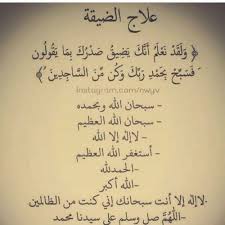 علاج الضيقة
﴿ وَلَقَدْ نَعْلَمُ أَنَّكَ يَضِيقُ صَدْرُكَ بِمَا يَقُولُونَ
فَسَبِّحْ بِحَمْدِ رَبِّكَ وَكُن مِّنَ السَّاجِدِينَ ﴾
Instagram.com/nwyv
- سبحان الله وبحمده
- سبحان الله العظيم
- لاإله إلا الله
- أستغفر الله العظيم
- الحمدلله
- الله أكبر
-لاإله إلا أنت سبحانك إني كنت من الظالمين
- اللَّهُمَّ صل وسلم على سيدنا محمد